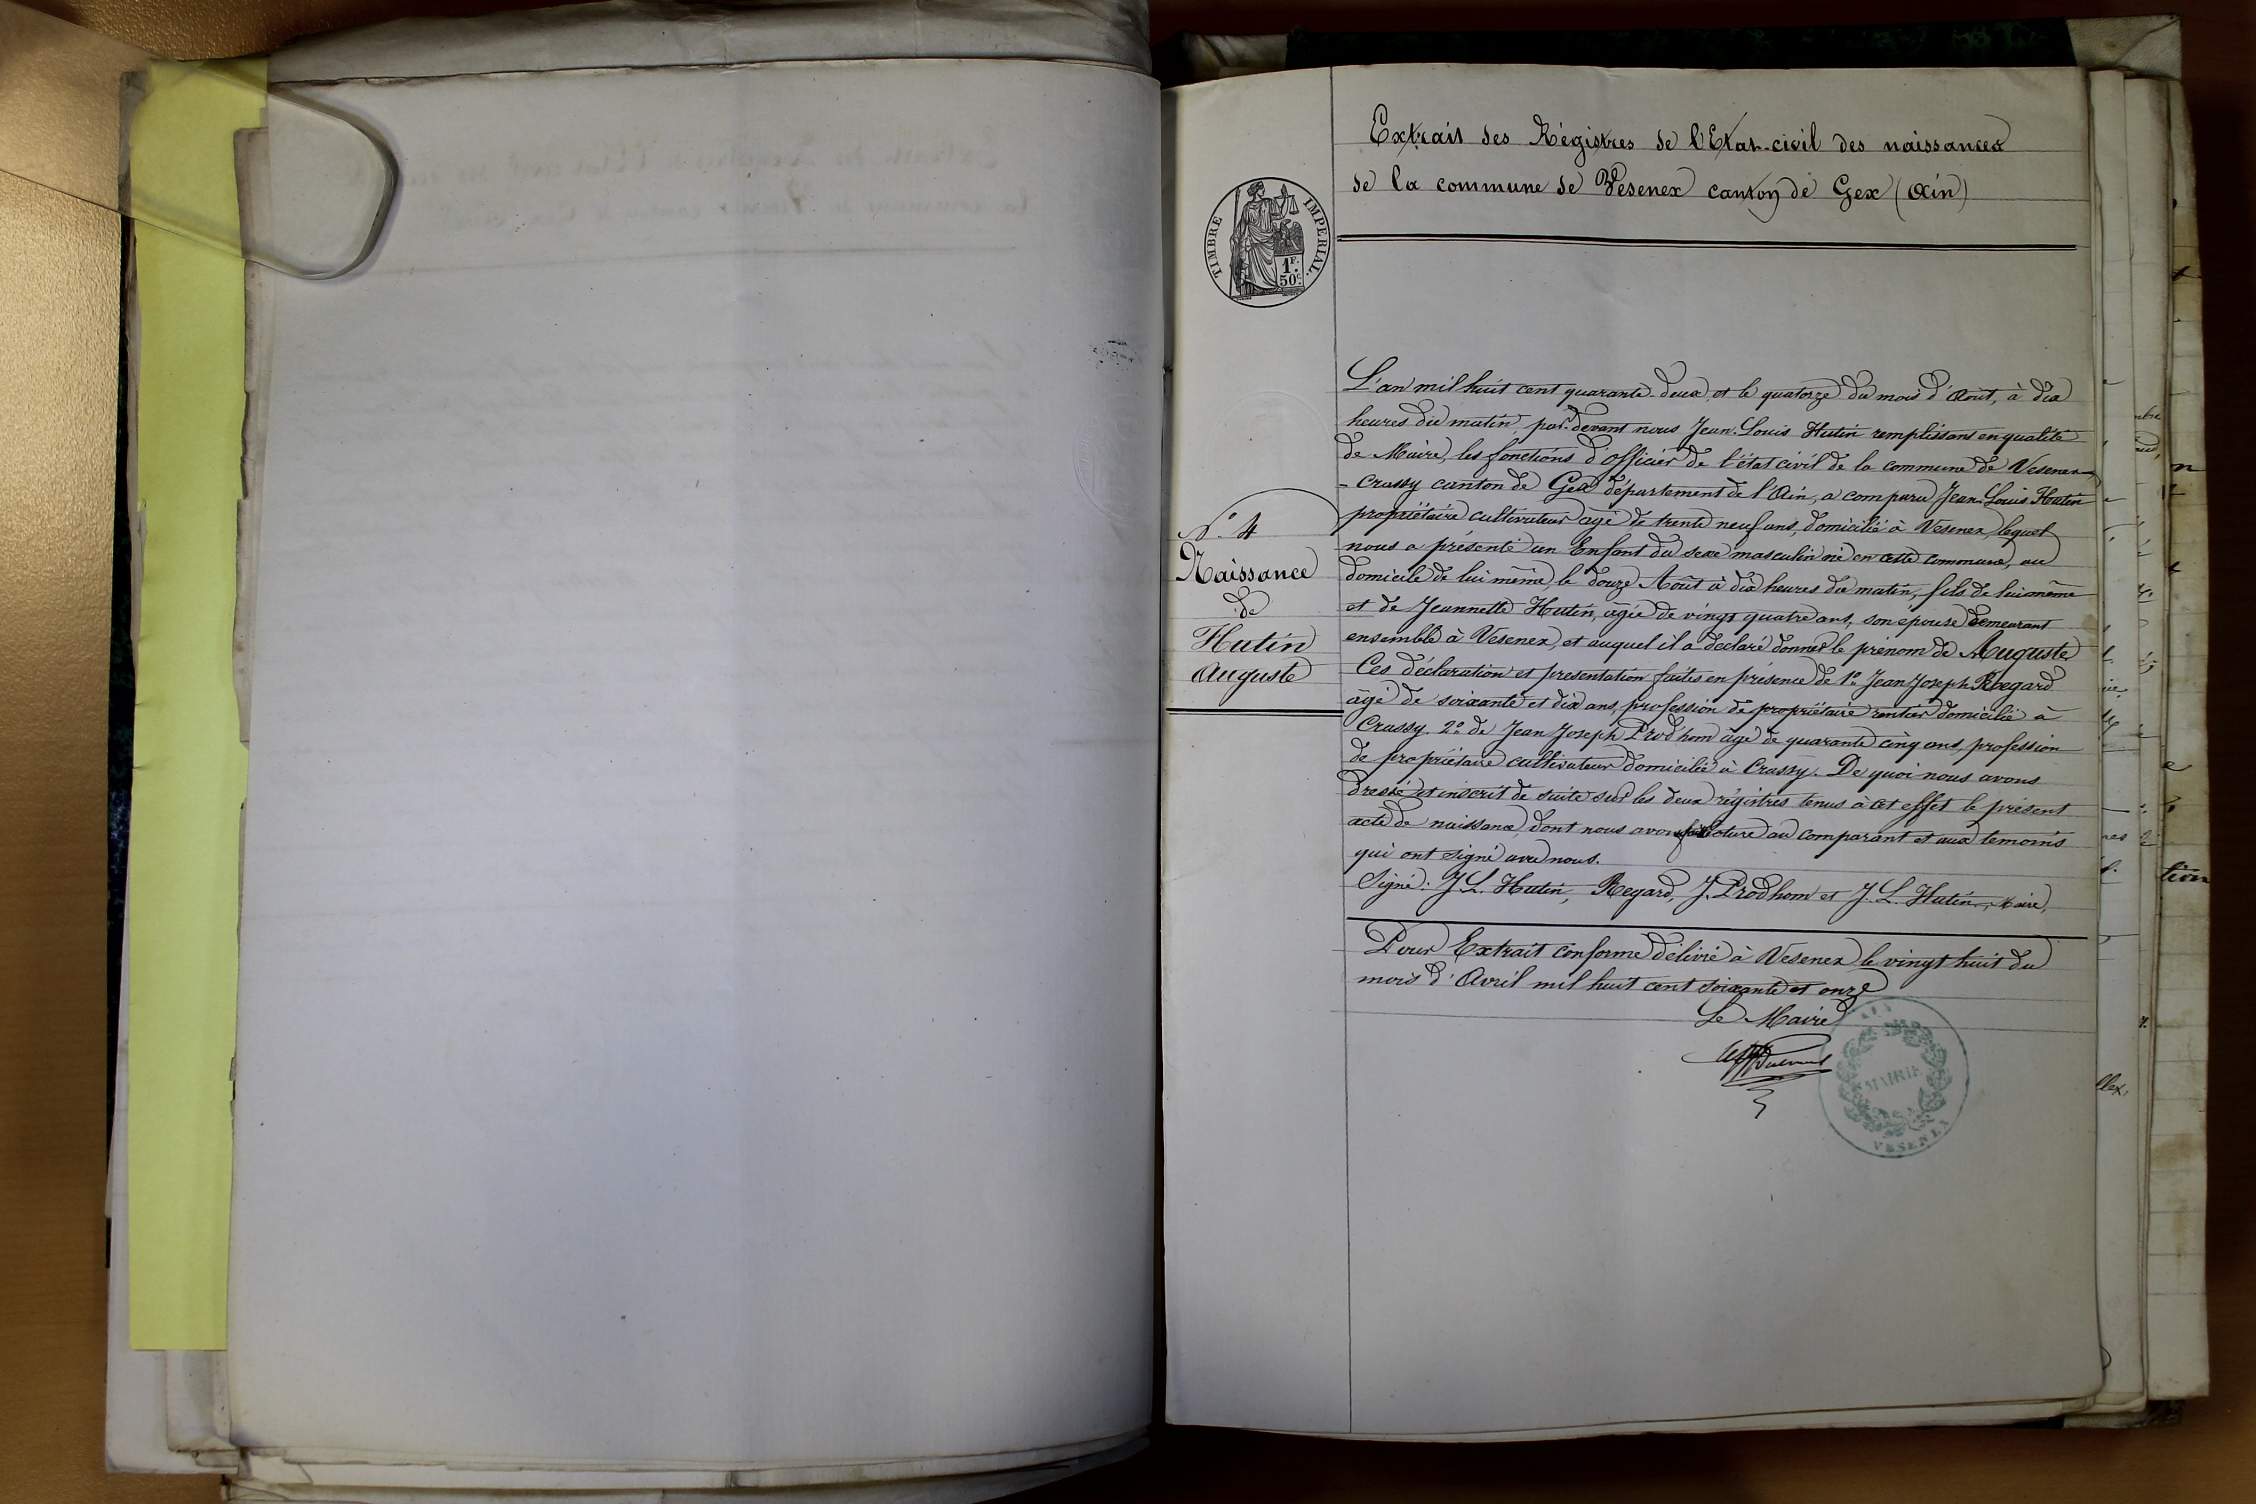 Extrait des Régistres de l'Etat-civil des naissances
de la commune de Vesenex canton de Gex (Ain)
TIMBRE IMPERIAL.
1F.
50c.
L'an mil huit cent quarante-deux et le quatorze du mois d'Août, à dix
heures du matin, par-devant nous Jean-Louis Hutin remplissant en qualité
de Maire, les fonctions d'officier de l'état civil de la commune de Vesenex
- Crassy canton de Gex département de l'Ain, a comparu Jean-Louis Hutin
propriétaire cultivateur âgé de trente neuf ans, domicilié à Vesenex, lequel
nous a présenté un Enfant du sexe masculin né en cette commune, au
domicile de lui même, le douze Août à dix heures du matin, fils de lui même
et de Jeannette Hutin, âgée de vingt quatre ans, son épouse demeurant
ensemble à Vesenex, et auquel il a déclaré donner le prénom de Auguste
Ces déclaration et présentation faites en présence de 1o Jean Joseph Regard
âgé de soixante et dix ans, profession de propriétaire rentier domicilié à
Crassy. 2o de Jean Joseph Prod'hom âgé de quarante cinq ans, profession
de propriétaire cultivateur domicilié à Crassy. De quoi nous avons
dressé et inscrit de suite sur les deux régistres tenus à cet effet le présent
acte de naissance, dont nous avons fait lecture au comparant et aux temoins
qui ont signé avec nous.
Signé: J. L. Hutin, Regard, J. Prodhom et J. L. Hutin, Maire,
Pour Extrait conforme délivré à Vesenex le vingt huit du
mois d'Avril mil huit cent soixante et onze
Le Maire
No. 4
Naissance
de
Hutin
Auguste
AIN
MAIRIE
VESENEX
tion
llex.